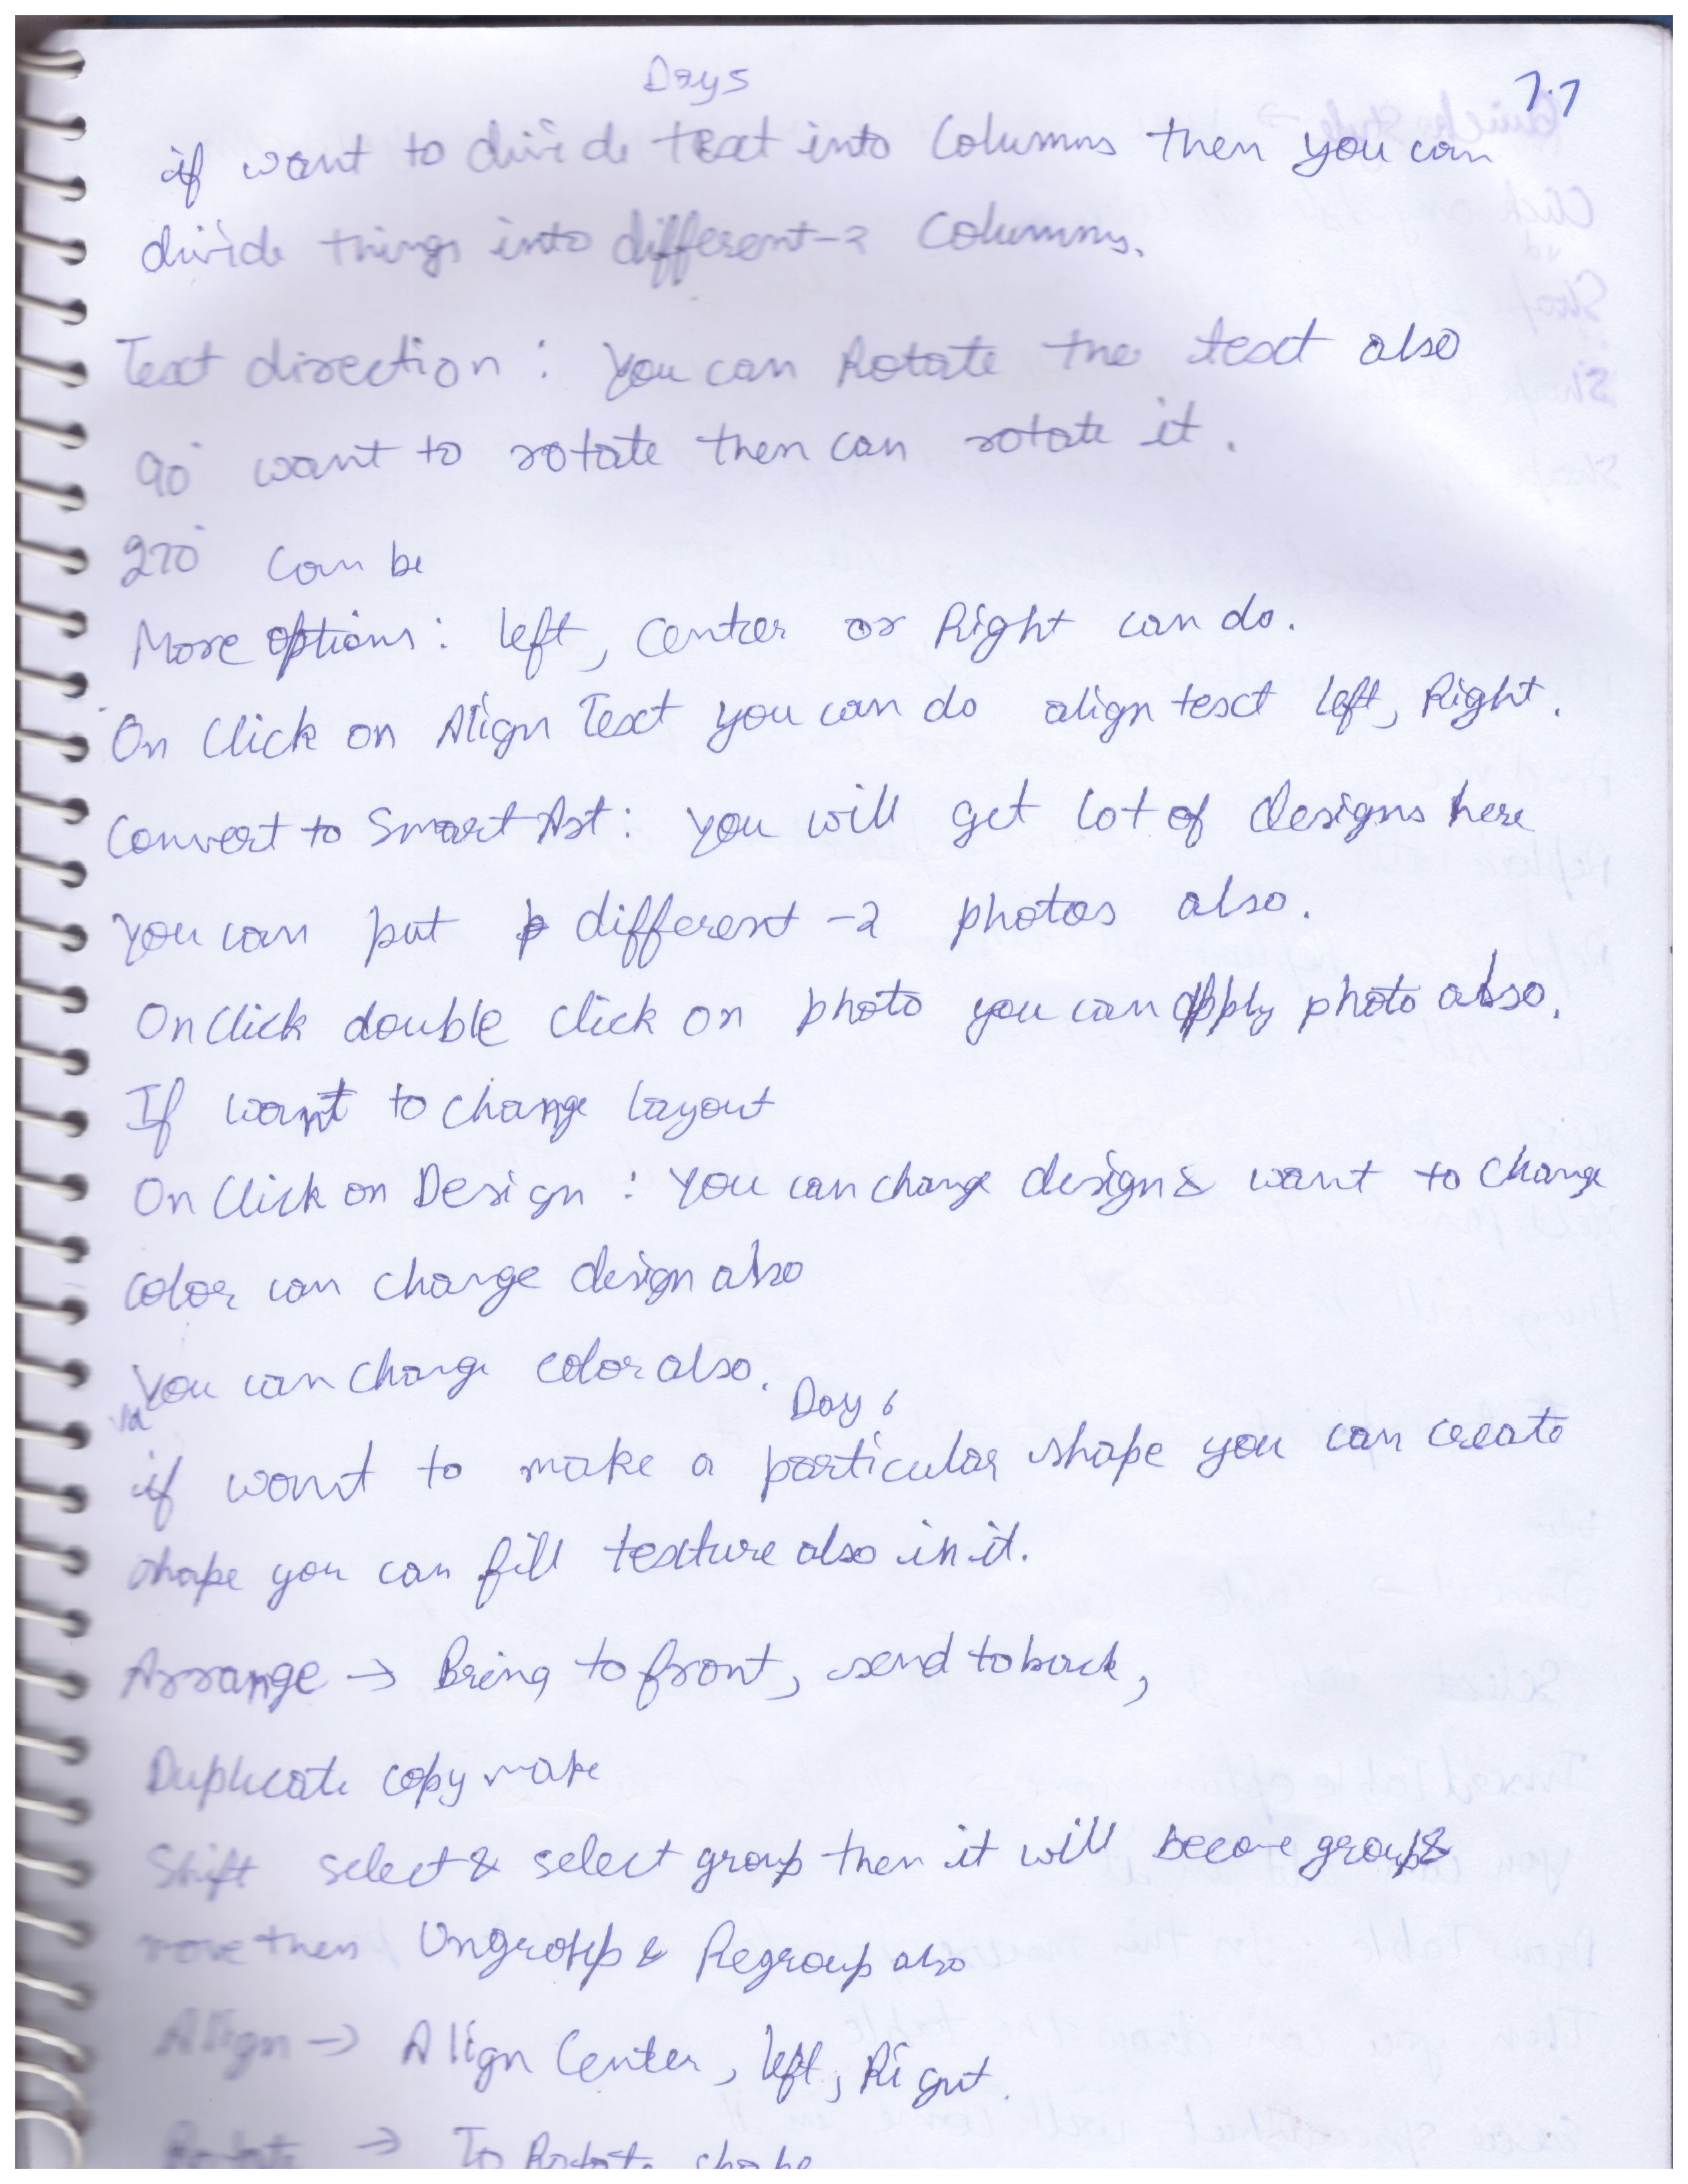 Day 5
7.7
if want to divide text into Columns then you can
divide things into different-2 Columns.
Text direction : You can Rotate the text also
90° want to rotate then can rotate it.
270° can be
More options : left, Center or Right can do.
On Click on Align Text you can do align text left, Right.
Convert to Smart Art : You will get lot of designs here
You can put different -2 photos also.
On Click double click on photo you can apply photo also.
If want to change layout
On Click on Design : You can change design & want to change
color can change design also
You can change color also.
Day 6
if want to make a particular shape you can create
shape you can fill texture also in it.
Arrange → Bring to front, send to back,
Duplicate copy make
Shift select & select group then it will become group &
move then Ungroup & Regroup also
Align → Align Center, left, Right.
Rotate → To Rotate shape